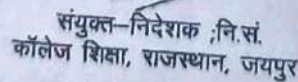 संयुक्त–निदेशक ;नि.सं.
कॉलेज शिक्षा, राजस्थान, जयपुर